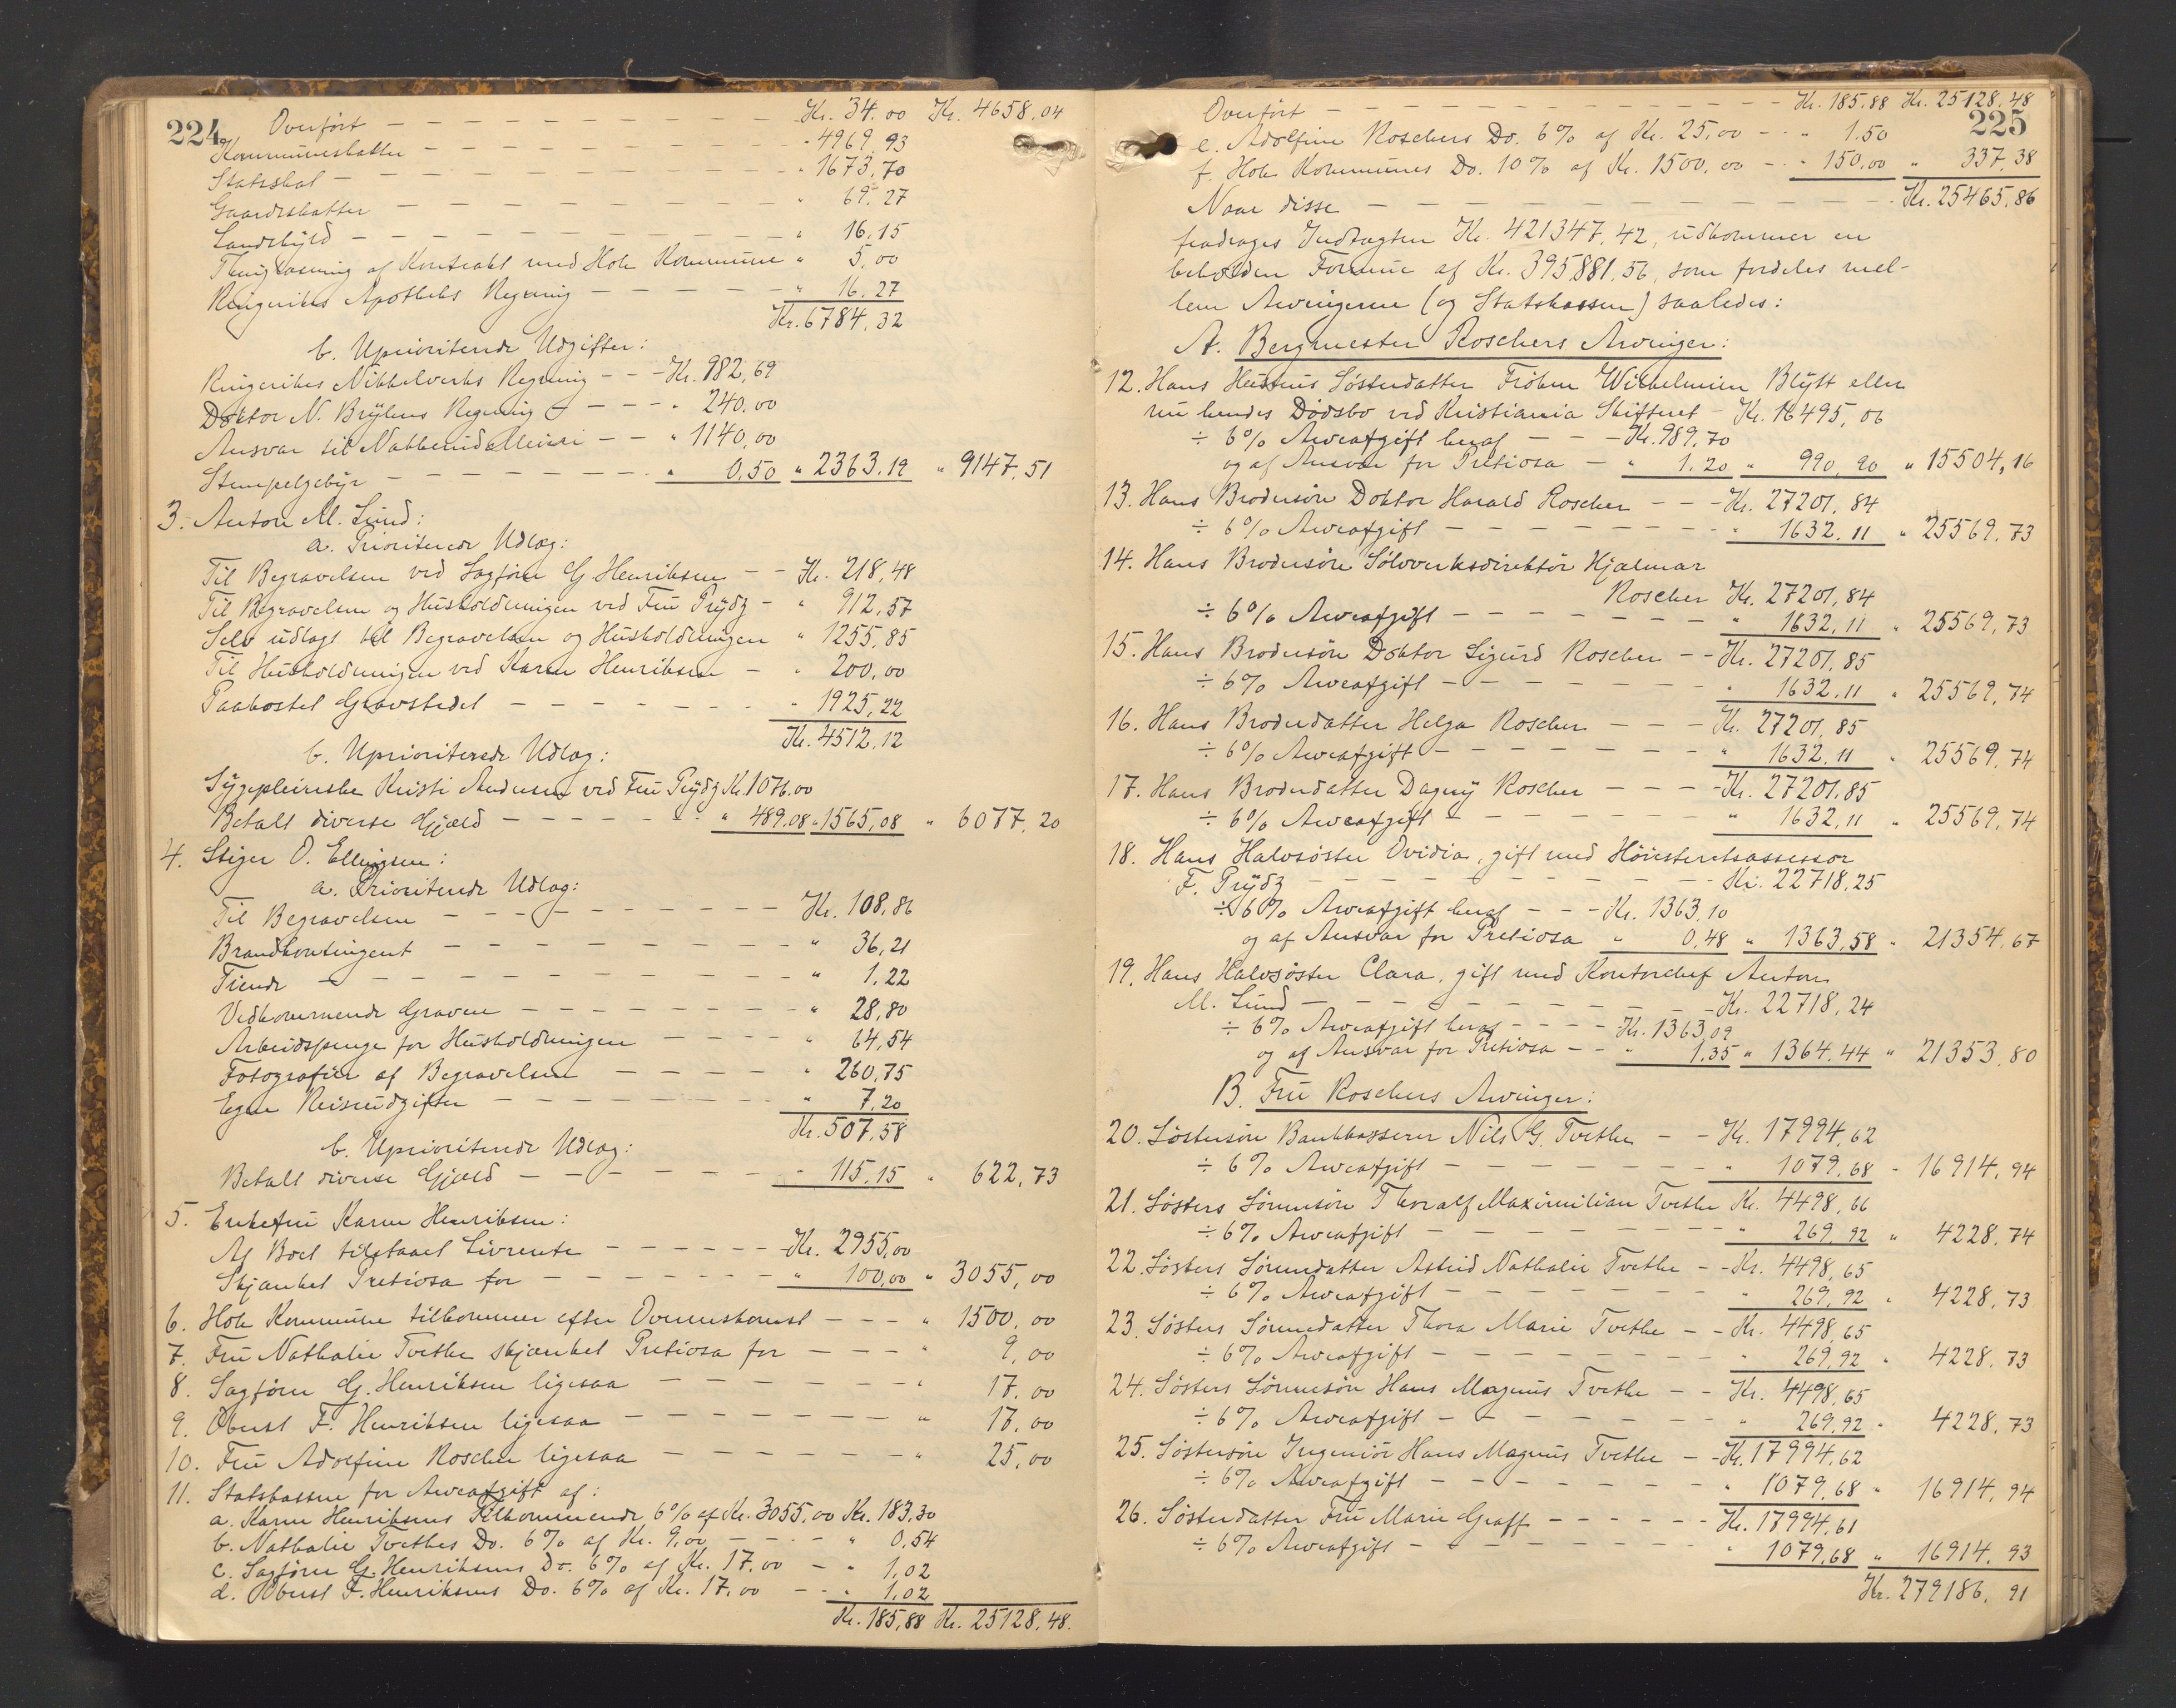 224
Overført — — — — — — — — — Kr. 34.00 Kr. 4658.04
Kommuneskatter — — — — — — — - 4969.93
Statsskat — — — — — — — — — " 1673.70
Gaardsskatter — — — — — — — — " 69.27
Landskyld — — — — — — — — — " 16.15
Thinglæsning af Kontrakt med Hole Kommune " 5.00
Ringerikes Apotheks Regning — — — — — " 16.27
Kr. 6784.32
b. Uprioriterede Udgifter:
Ringerikes Nikkelverks Regning — — — Kr. 982,69
Doktor N. Bryhns Regning — — — — " 240.00
Ansvar til Nakkerud Meieri — — " 1140,00
Stempelgebyr — — — — — — " 0.50 " 2363.19 " 9147.51
3. Anton M. Lund:
a. Prioriterede Udlæg:
Til Begravelsen ved Sagfører G. Henriksen — — Kr. 218,48
Til Begravelsen og Husholdningen ved Fru Prydz — " 912,57
Selv udlagt til Begravelsen og Husholdningen " 1255,85
Til Husholdningen ved Karen Henriksen — " 200,00
Paakostet Gravstedet — — — — — — - 1925,22
Kr. 4512,12
b. Uprioriterede Udlæg:
Sygepleierske Kristi Andersen ved Fru Prydz Kr. 1076.00
Betalt diverse Gjæld — — — — — — " 489.08 " 1565,08 " 6077,20
4. Stiger O. Ellingsen:
a. Prioriterede Udlæg:
Til Begravelsen — — — — — — — — Kr. 108,86
Brandkontingent — — — — — — — — " 36,21
Tiende — — — — — — — — — " 1,22
Vedkommende Graven — — — — — — — " 28,80
Arbeidspenge for Husholdningen — — — — " 64,54
Fotografier af Begravelsen — — — — " 260,75
Egne Reiseudgifter — — — — — — — " 7,20
Kr. 507,58
b. Uprioriterede Udlæg:
Betalt diverse Gjæld — — — — — — - 115,15 " 622,73
5. Enkefru Karen Henriksen:
Af Boet tilstaaet Livrente — — — — — Kr. 2955,00
Skjænket Pretiosa for — — — — — — " 100,00 " 3055,00
6. Hole Kommune tilkommer efter Overenskomst — — — " 1500,00
7. Fru Nathalie Tvethe skjænket Pretiosa for — — — " 9,00
8. Sagfører G. Henriksen ligesaa — — — — — " 17,00
9. Oberst F. Henriksen ligesaa — — — — — — " 17,00
10. Fru Adolfine Roscher ligesaa — — — — — — " 25,00
11. Statskassen for Arveafgift af:
a. Karen Henriksens Tilkommende 6% af Kr. 3055,00 Kr. 183,30
b. Nathalie Tvethes Do. 6% af Kr. 9,00 — — — " 0,54
c. Sagfører G. Henriksens Do. 6% af Kr. 17,00 — " 1,02
d. Oberst F. Henriksens Do. 6% af Kr. 17,00 — — " 1,02
Kr. 185,88 Kr. 25128,48.
225
Overført — — — — — — — — — — Kr. 185,88 Kr. 25128,48
e. Adolfine Roschers Do. 6% af Kr. 25,00 — - " 1.50
f. Hole Kommunes Do. 10% af Kr. 1500,00 — - " 150,00 " 337,38
Naar disse — — — — — — — — — — — Kr. 25465,86
fradrages Indtægten Kr. 421347,42, udkommer en
beholden Formue af Kr. 395881,56, som fordeles mel-
lem Arvingerne (og Statskassen) saaledes:
A. Bergmester Roschers Arvinger:
12. Hans Hustrus Søsterdatter Frøken Wilhelmine Blytt eller
nu hendes Dødsbo ved Kristiania Skifteret — Kr. 16495,06
÷ 6% Arveafgift heraf — — — Kr. 989,70
og af Ansvar for Pretiosa — " 1.20 " 990,90 " 15504,16
13. Hans Brodersøn Doktor Harald Roscher — — - Kr. 27201,84
÷ 6% Arveafgift — — — — — — — - " 1632,11 " 25569,73
14. Hans Brodersøn Sølvverksdirektør Hjalmar
Roscher Kr. 27201,84
÷ 6% Arveafgift — — — — — — — " 1632,11 " 25569,73
15. Hans Brodersøn Doktor Sigurd Roscher — - Kr. 27201,85
÷ 6% Arveafgift — — — — — — — " 1632,11 " 25569,74
16. Hans Broderdatter Helga Roscher — — — Kr. 27201,85
÷ 6% Arveafgift — — — — — — — " 1632,11 " 25569,74
17. Hans Broderdatter Dagny Roscher — — — - Kr. 27201,85
÷ 6% Arveafgift — — — — — — — " 1632,11 " 25569,74
18. Hans Halvsøster Ovidia, gift med Høiesteretsassessor
F. Prydz — — — — — — — — — - Kr. 22718,25
÷ 6% Arveafgift heraf — — - Kr. 1363,10
og af Ansvar for Pretiosa " 0,48 " 1363,58 " 21354,67
19. Hans Halvsøster Clara, gift med Kontorchef Anton
M. Lund — — — — — — — — — - Kr. 22718,24
÷ 6% Arveafgift heraf — — — — Kr. 1363,09
og af Ansvar for Pretiosa — — " 1,35 " 1364.44 " 21353,80
B. Fru Roschers Arvinger:
20. Søstersøn Bankkasserer Nils G. Tvethe — - Kr. 17994,62
÷ 6% Arveafgift — — — — — — — " 1079,68 - 16914,94
21. Søsters Sønnesøn Thoralf Maximilian Tvethe Kr. 4498,66
÷ 6% Arveafgift — — — — — — — " 269,92 " 4228,74
22. Søsters Sønnedatter Astrid Nathalie Tvethe — - Kr. 4498,65
÷ 6% Arveafgift — — — — — — — " 269,92 " 4228,73
23. Søsters Sønnedatter Thora Marie Tvethe — - Kr. 4498,65
÷ 6% Arveafgift — — — — — — — " 269,92 " 4228,73
24. Søsters Sønnesøn Hans Magnus Tvethe — — Kr. 4498,65
÷ 6% Arveafgift — — — — — — — " 269,92 - 4228,73
25. Søstersøn Ingeniør Hans Magnus Tvethe — - Kr. 17994,62
÷ 6% Arveafgift — — — — — — — " 1079,68 " 16914,94
26. Søsterdatter Fru Marie Graff — — — — — - Kr. 17994,61
÷ 6% Arveafgift — — — — — — — " 1079,68 " 16914,93
Kr. 279186,91